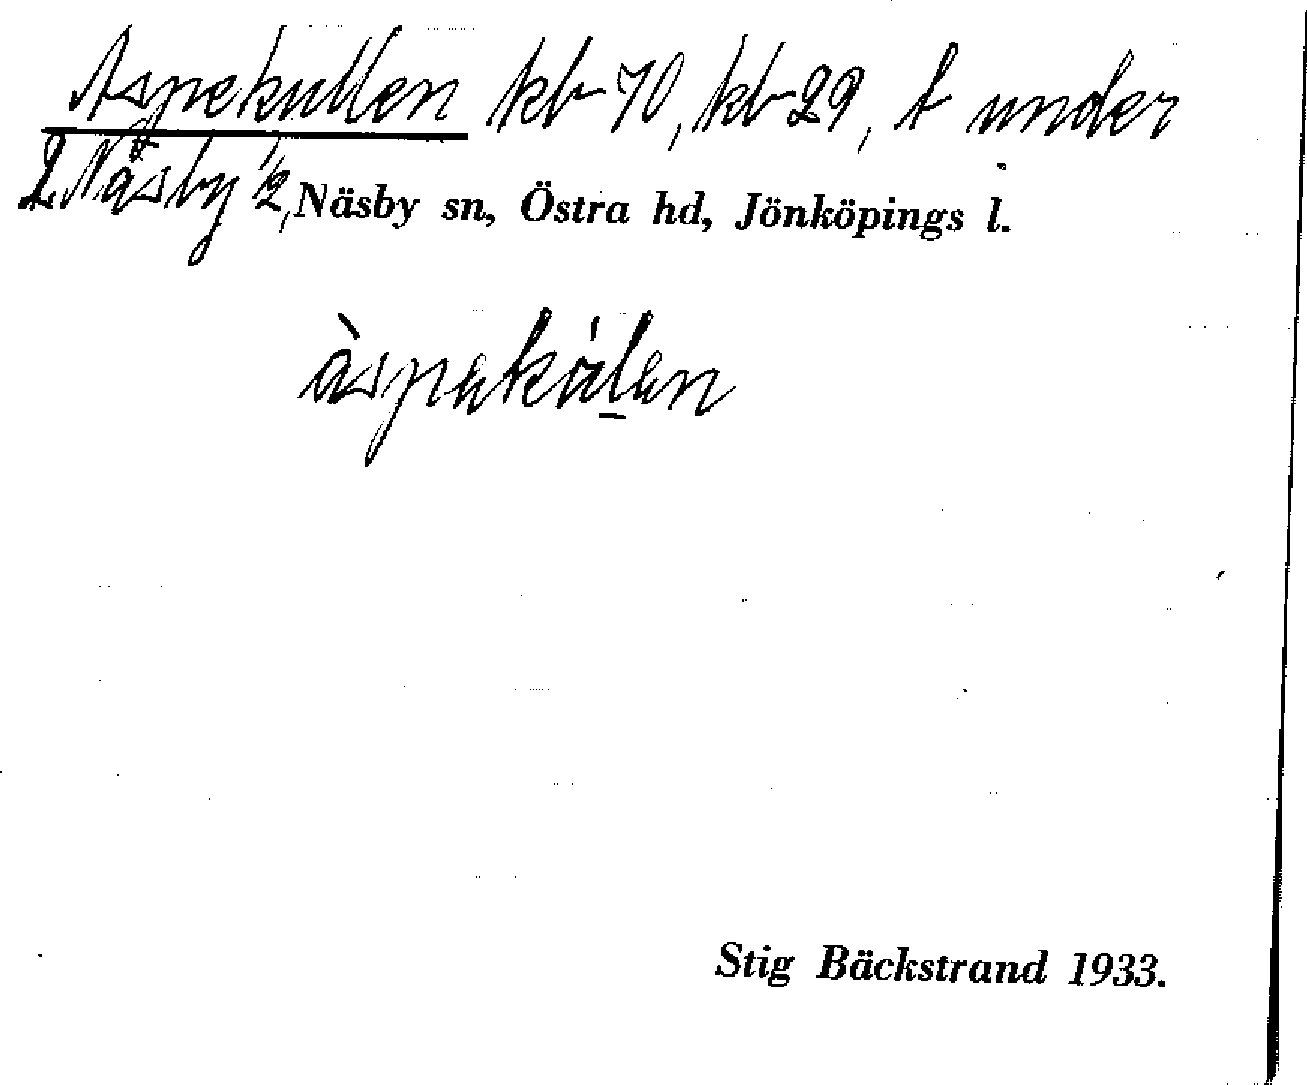 Aspekullen kb 70, kb 29, t under
2 Näsby 1/2, Näsby sn, Östra hd, Jönköpings l.
àspekálen
Stig Bäckstrand 1933.